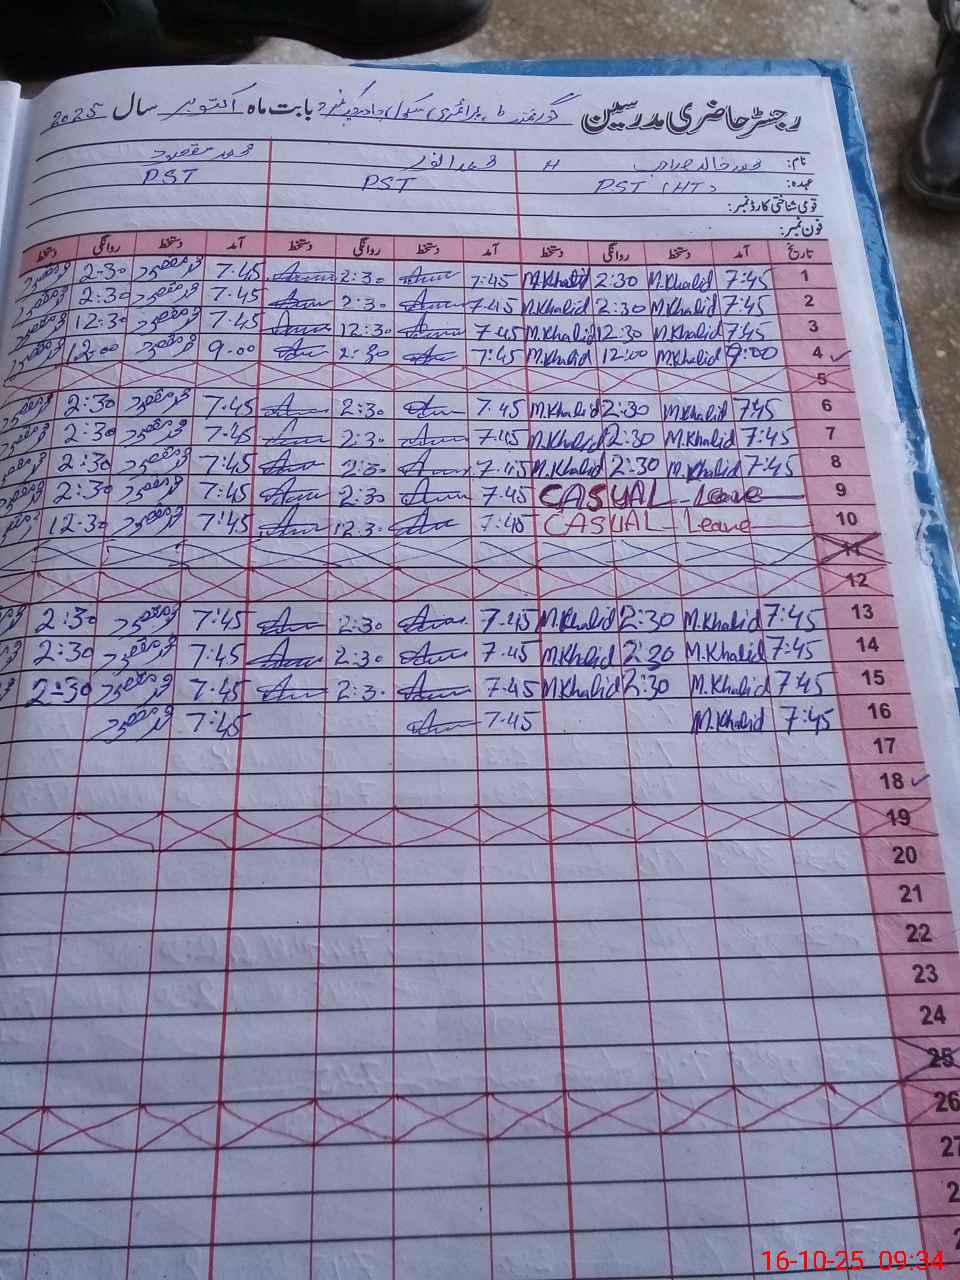 رجسٹر حاضری مدرسین گورنمنٹ پرائمری سکول نمبر 2 بابت ماہ اکتوبر سال 2025
نام: محمد خالد صاحب محمد انور محمد مقصود
عہدہ: PST (HT) PST PST
قومی شناختی کارڈ نمبر:
فون نمبر:
تاریخ آمد دستخط روانگی دستخط آمد دستخط روانگی دستخط آمد دستخط روانگی دستخط
1 7:45 M.Khalid 2:30 M.Khalid 7:45 2:30 7.45 محمد مقصود 2-30 محمد مقصود
2 7:45 M.Khalid 2:30 M.Khalid 7.45 2:30 7.45 محمد مقصود 2:30 محمد مقصود
3 7:45 M.Khalid 12:30 M.Khalid 7.45 12:30 7.45 محمد مقصود 12:30 محمد مقصود
4 9:00 M.Khalid 12:00 M.Khalid 7:45 2:30 9.00 محمد مقصود 12:00 محمد مقصود
5
6 7:45 M.Khalid 2:30 M.Khalid 7.45 2:30 7.45 محمد مقصود 2:30 محمد مقصود
7 7:45 M.Khalid 2:30 M.Khalid 7.45 2:30 7.45 محمد مقصود 2:30 محمد مقصود
8 7:45 M.Khalid 2:30 M.Khalid 7.45 2:30 7:45 محمد مقصود 2:30 محمد مقصود
9 CASUAL Leave 7.45 2:30 7:45 محمد مقصود 2:30 محمد مقصود
10 CASUAL Leave 7:45 12.30 7:45 محمد مقصود 12.30
11
12
13 7:45 M.Khalid 2:30 M.Khalid 7.45 2:30 7:45 محمد مقصود 2:30
14 7:45 M.Khalid 2:30 M.Khalid 7.45 2:30 7:45 محمد مقصود 2:30
15 7:45 M.Khalid 2:30 M.Khalid 7:45 2:30 7:45 محمد مقصود 2:30
16 7:45 M.Khalid 7.45 7:45 محمد مقصود
17
18
19
20
21
22
23
24
25
26
27
16-10-25 09:34